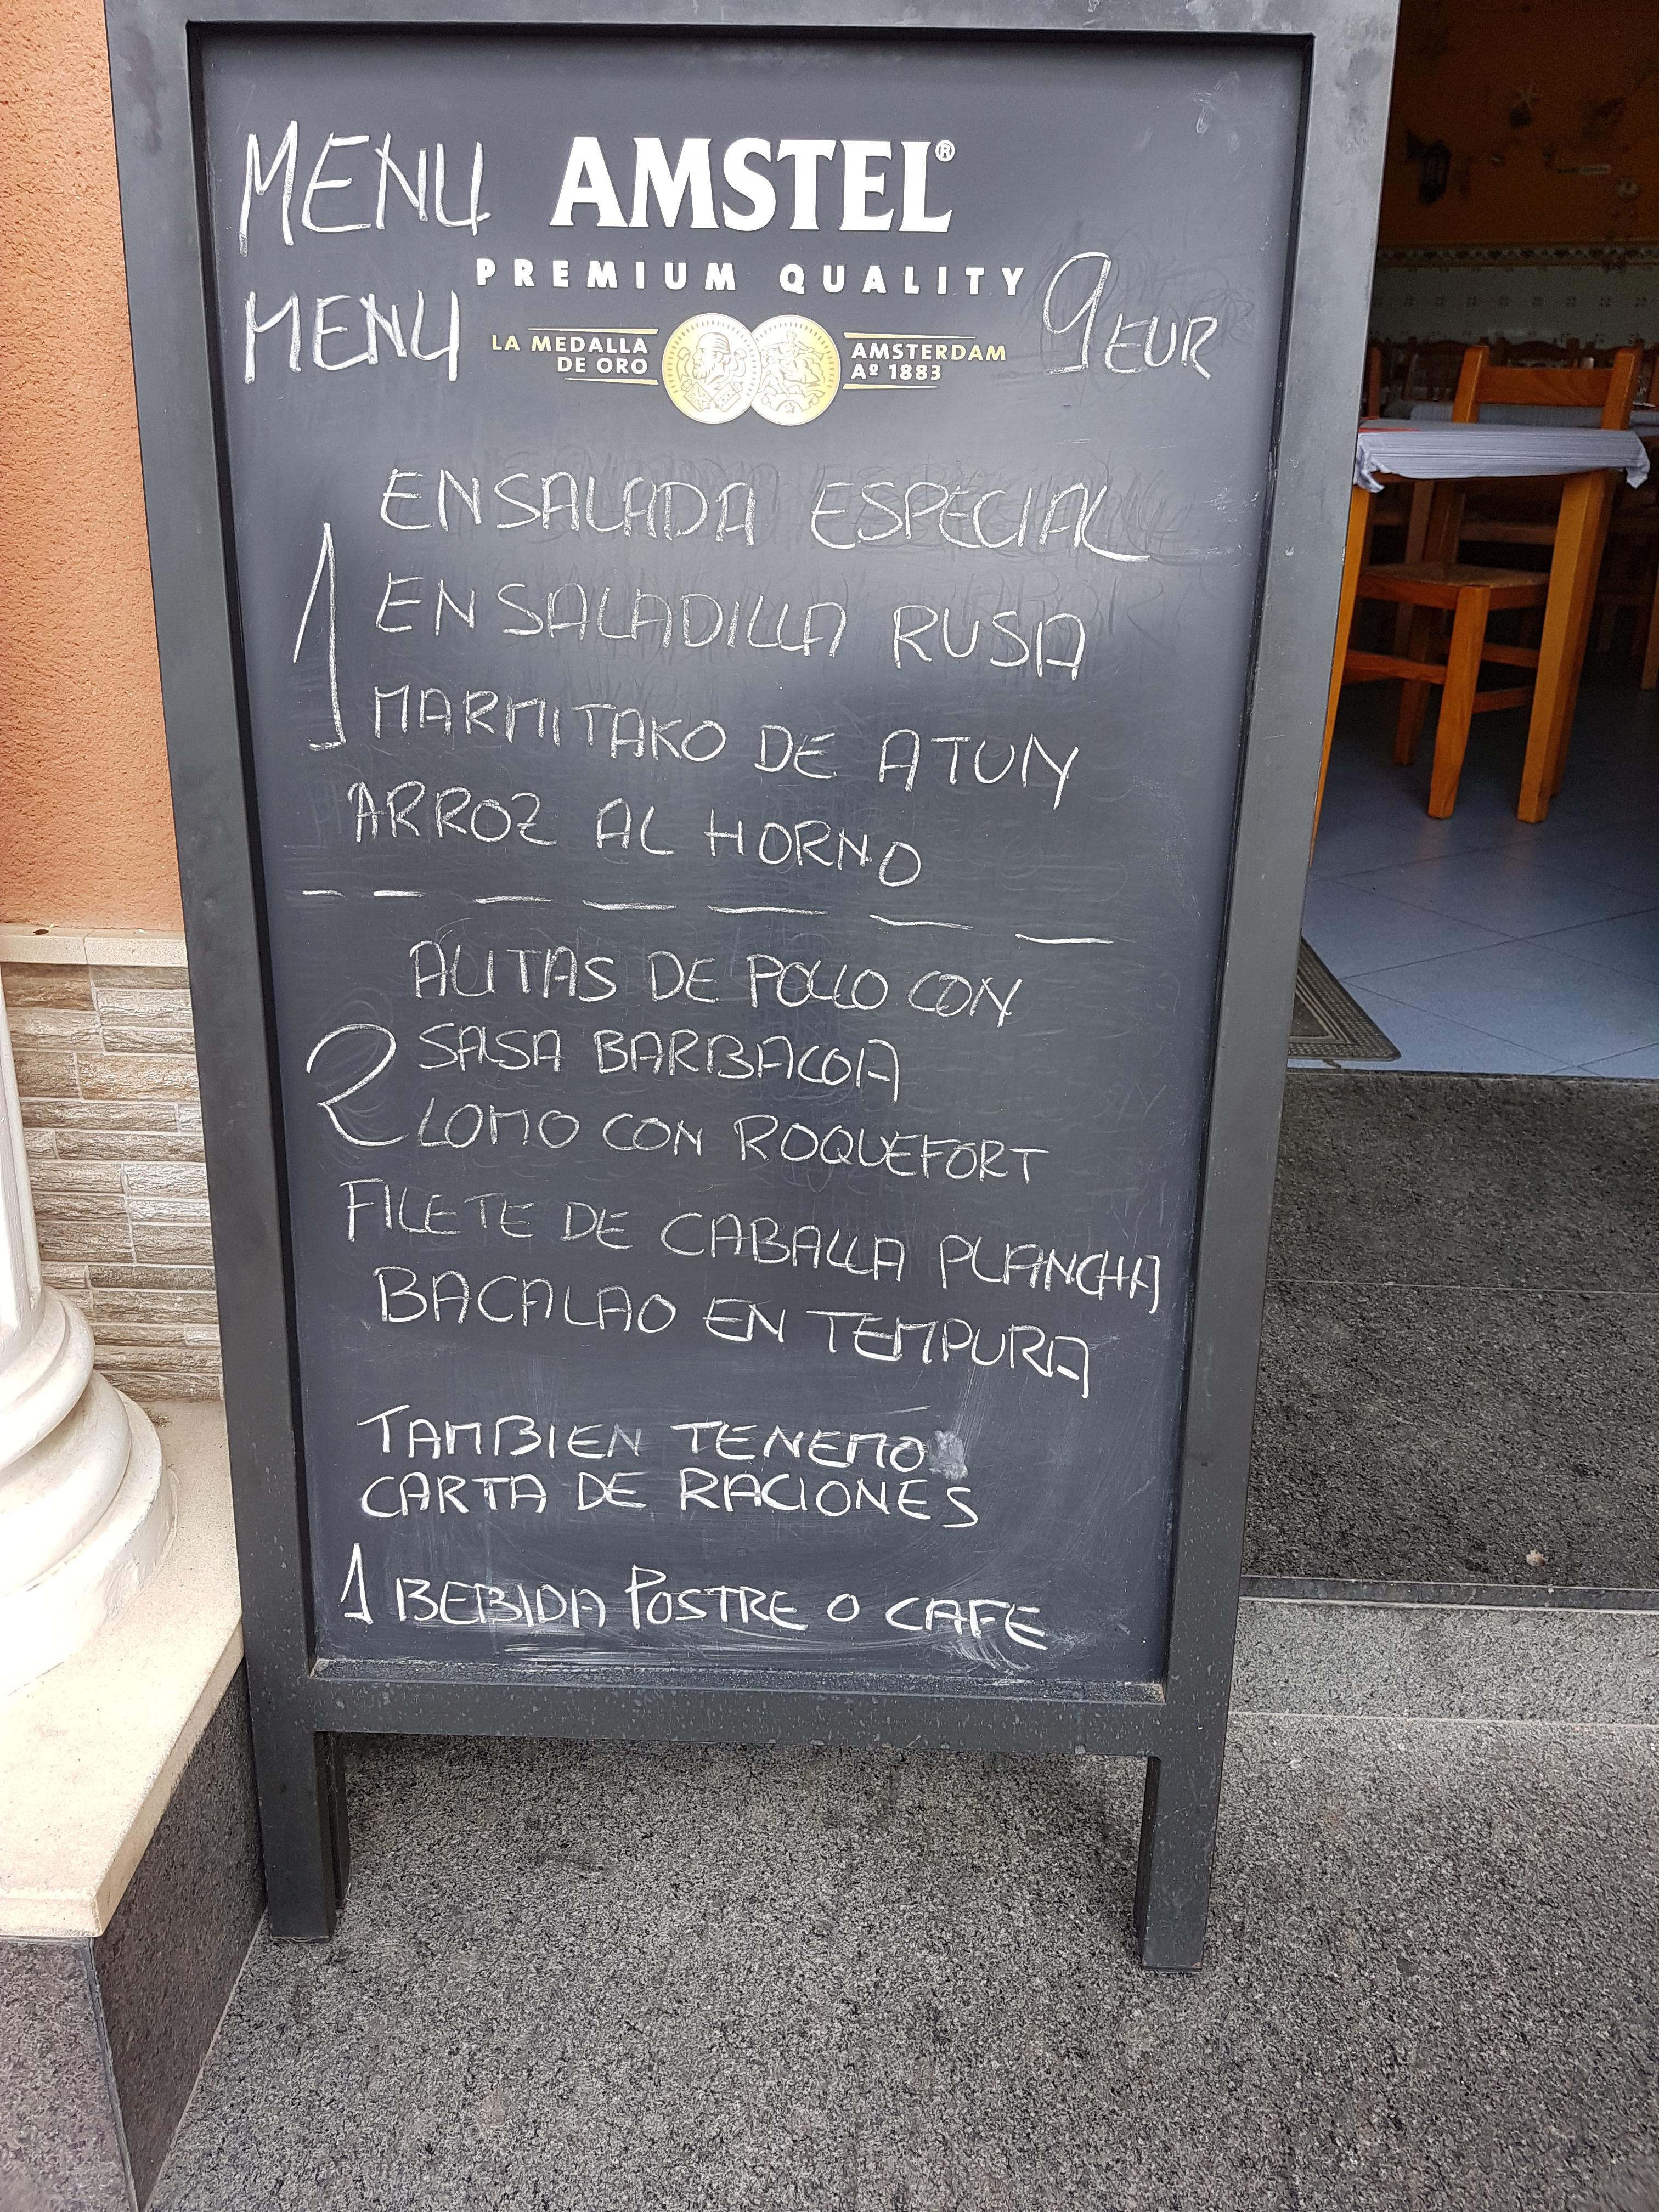 MENU AMSTEL®
PREMIUM QUALITY
MENU LA MEDALLA DE ORO AMSTERDAM Aº 1883 9 EUR
ENSALADA ESPECIAL
1 ENSALADILLA RUSA
MARMITAKO DE ATUN
ARROZ AL HORNO
ALITAS DE POLLO CON
2 SALSA BARBACOA
LOMO CON ROQUEFORT
FILETE DE CABALLA PLANCHA
BACALAO EN TEMPURA
TAMBIEN TENEMO
CARTA DE RACIONES
1 BEBIDA POSTRE O CAFE